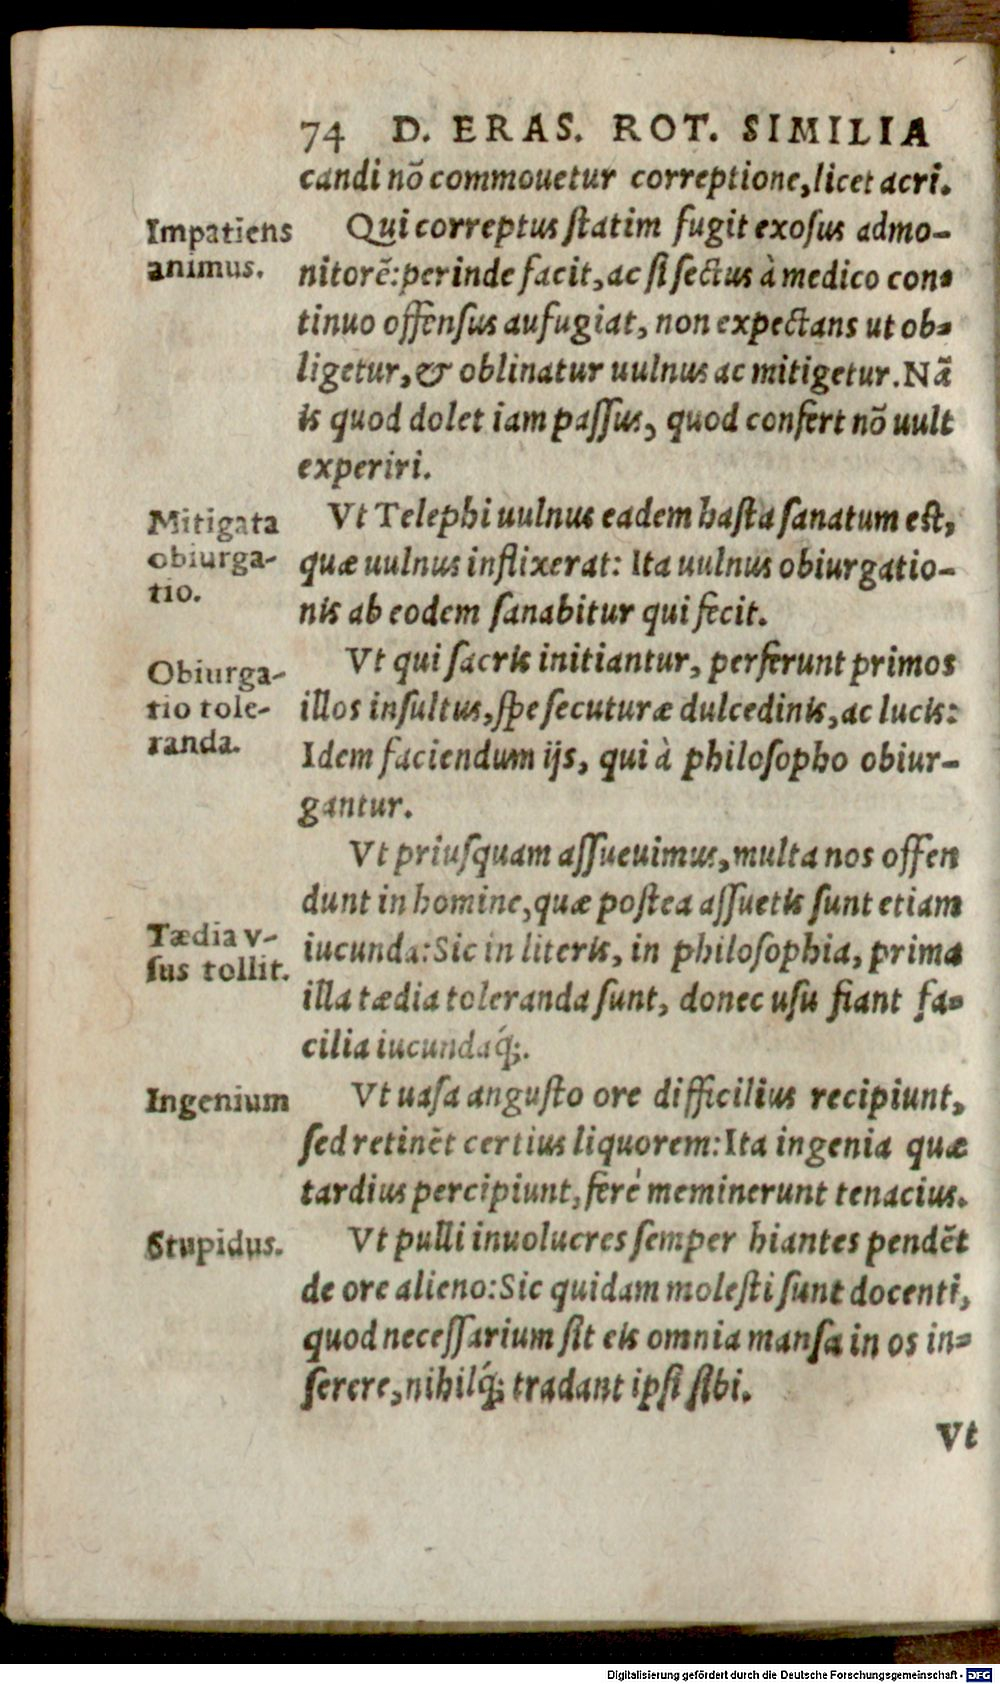 74 D. ERAS. ROT. SIMILIA
candi nõ commouetur correptione, licet acri.
Impatiens
animus.
Qui correptus ſtatim fugit exoſus admo-
nitorẽ: perinde facit, ac ſi ſectus à medico con-
tinuo offenſus aufugiat, non expectans ut ob-
ligetur, & oblinatur uulnus ac mitigetur. Nã
is quod dolet iam paſſus, quod confert nõ uult
experiri.
Mitigata
obiurga-
tio.
Vt Telephi uulnus eadem haſta ſanatum eſt,
quæ uulnus inflixerat: Ita uulnus obiurgatio-
nis ab eodem ſanabitur qui fecit.
Obiurga-
tio tole-
randa.
Vt qui ſacris initiantur, perferunt primos
illos inſultus, ſpe ſecuturæ dulcedinis, ac lucis:
Idem faciendum ijs, qui à philoſopho obiur-
gantur.
Vt priuſquam aſſueuimus, multa nos offen
dunt in homine, quæ poſtea aſſuetis ſunt etiam
Tædia v-
ſus tollit.
iucunda: Sic in literis, in philoſophia, prima
illa tædia toleranda ſunt, donec uſu fiant fa-
cilia iucundaq́;.
Ingenium
Vt uaſa anguſto ore difficilius recipiunt,
ſed retinẽt certius liquorem: Ita ingenia quæ
tardius percipiunt, ferè meminerunt tenacius.
Stupidus.
Vt pulli inuolucres ſemper hiantes pendẽt
de ore alieno: Sic quidam moleſti ſunt docenti,
quod neceſſarium ſit eis omnia manſa in os in-
ſerere, nihilq́; tradant ipſi ſibi.
Vt
Digitalisierung gefördert durch die Deutsche Forschungsgemeinschaft - DFG